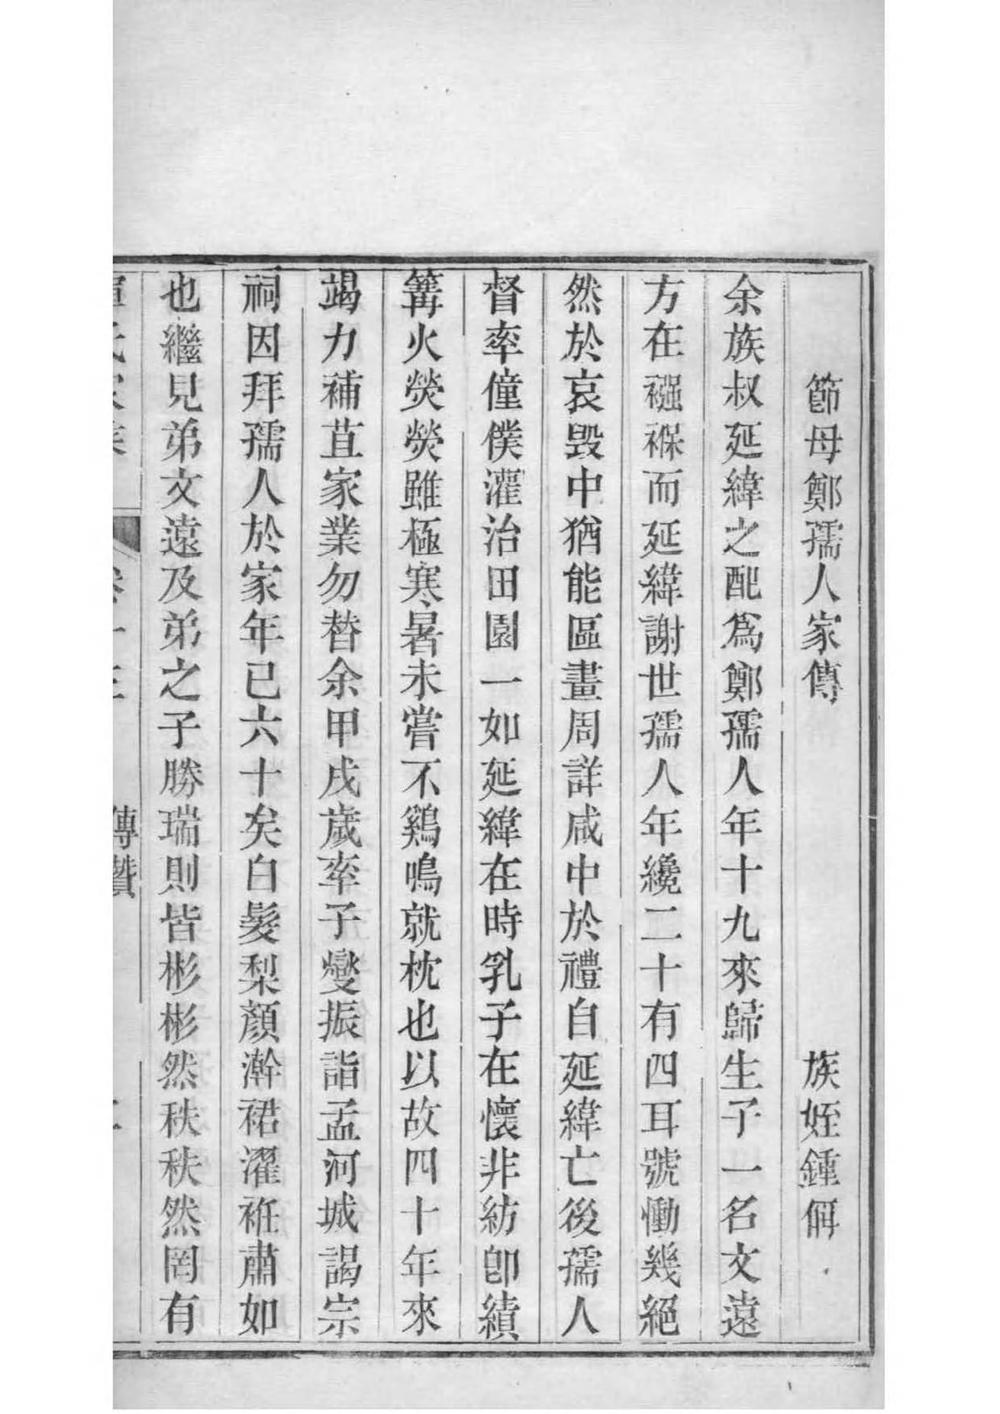 節母鄭孺人家傳 族姪鍾僎
余族叔延緯之配爲鄭孺人年十九來歸生子一名文遠
方在襁褓而延緯謝世孺人年纔二十有四耳號慟幾絕
然於哀毀中猶能區畫周詳咸中於禮自延緯亡後孺人
督率僮僕灌治田園一如延緯在時乳子在懷非紡卽績
篝火熒熒雖極寒暑未嘗不鷄鳴就枕也以故四十年來
竭力補苴家業勿替余甲戌歲率子燮振詣孟河城謁宗
祠因拜孺人於家年已六十矣白髮梨顏澣裙濯袵肅如
也繼見弟文遠及弟之子勝瑞則皆彬彬然秩秩然罔有
傳贊